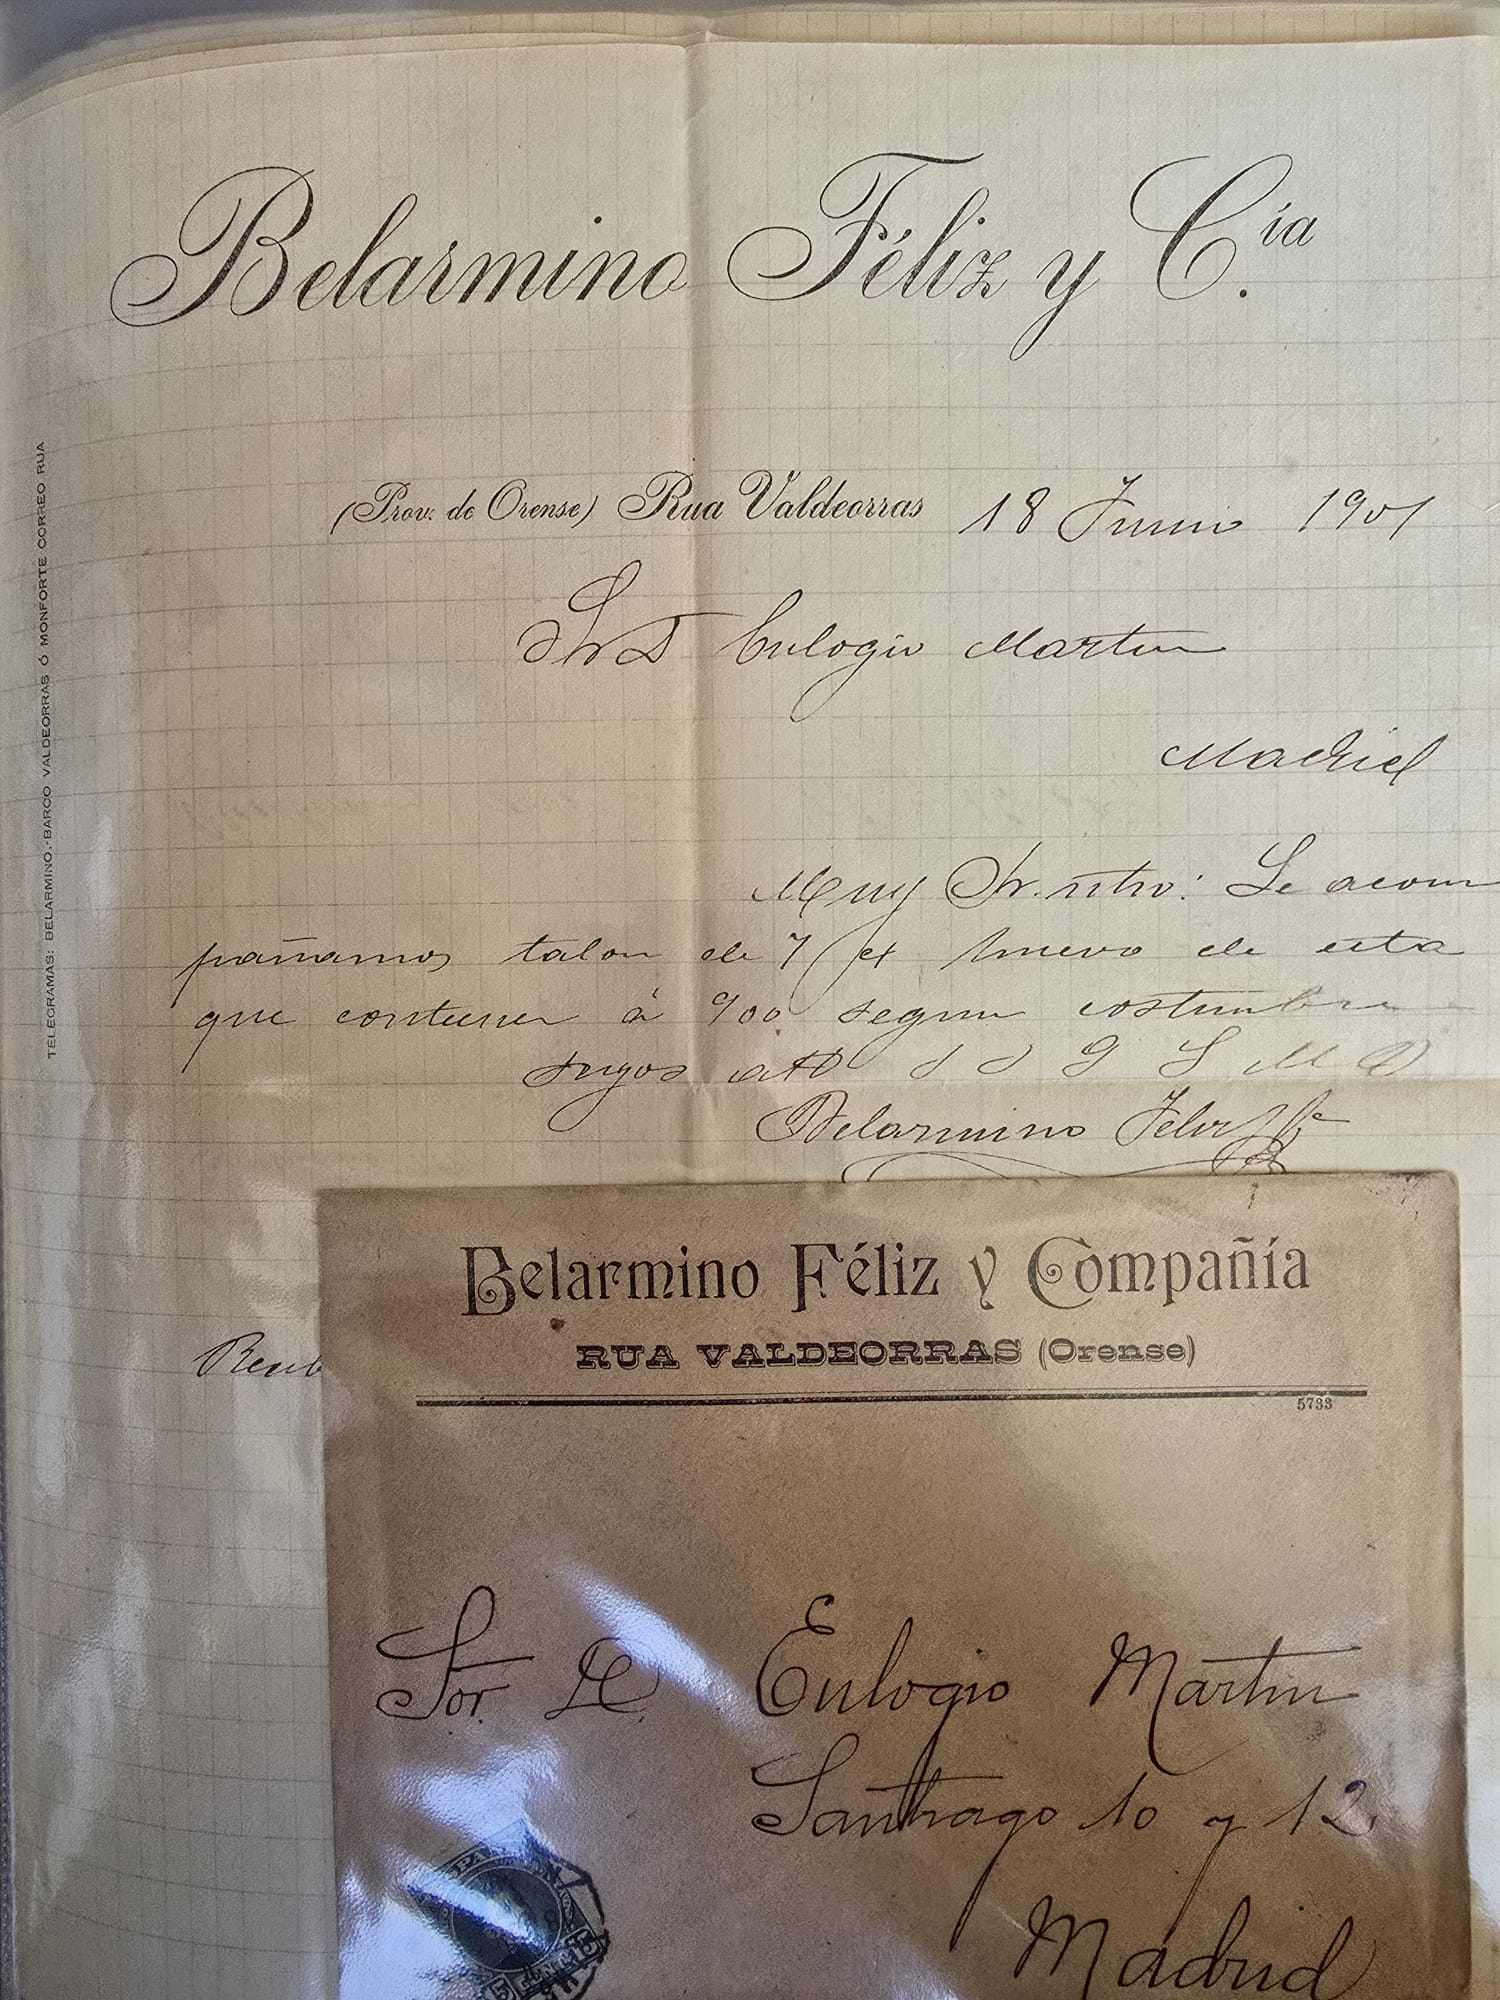 Belarmino Féliz y C.ía
(Prov. de Orense) Rua Valdeorras 18 Junio 1901
Sr D Eulogio Martin
Madrid
Muy Sr. ntro: Le acom
pañamos talon de 7 huevo de esta
que contienen á 900 segun costumbre
suyos att S S Q S M B
Belarmino Feliz y Cª
TELEGRAMAS: BELARMINO.-BARCO VALDEORRAS Ó MONFORTE CORREO RUA
Belarmino Féliz y Compañía
RUA VALDEORRAS (Orense)
5733
Sor. D. Eulogio Martin
Santiago 10 y 12
Madrid